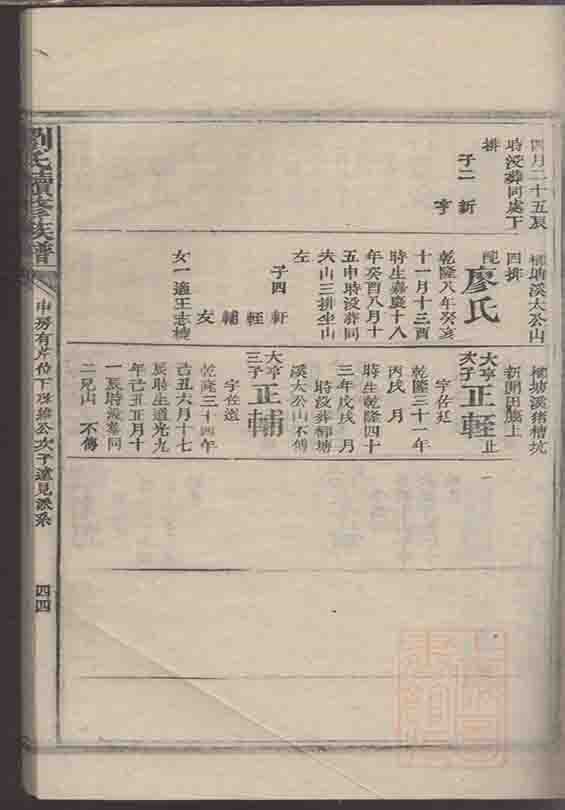 四月二十五辰
時沒葬同處下
排
子二 新
亨
柳塘溪大公山
四排
配廖氏
乾隆八年癸亥
十一月十三酉
時生嘉慶十八
年癸酉八月十
五申時沒葬同
大山三排坐山
左
子四 軒
輊
輔
友
女一適王志棱
柳塘溪豬槽坑
新開田牆上
大亨次子正輊止
字佐廷
乾隆三十一年
丙戌 月
時生乾隆四十
三年戊戌 月
時沒葬柳塘
溪大公山不傳
大亨三子正輔
字佐遠
乾隆三十四年
己丑六月十七
辰時生道光九
年己丑正月十
一辰時沒葬同
二兄山 不傳
劉氏續修族譜
次子遠見派系
四四